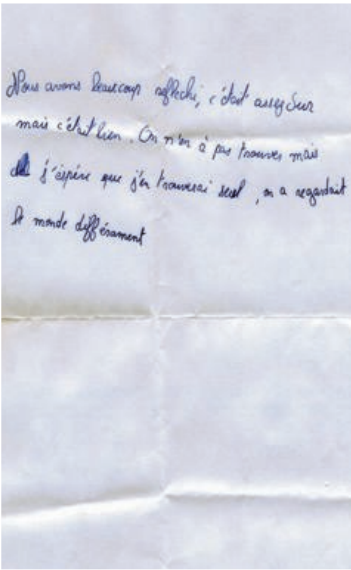 Nous avons beaucoup réflechi, c'était assez dur
mais c'était bien. On n'en à pas trouver mais
j'éspère que j'en trouverai seul, on a regardait
le monde différament